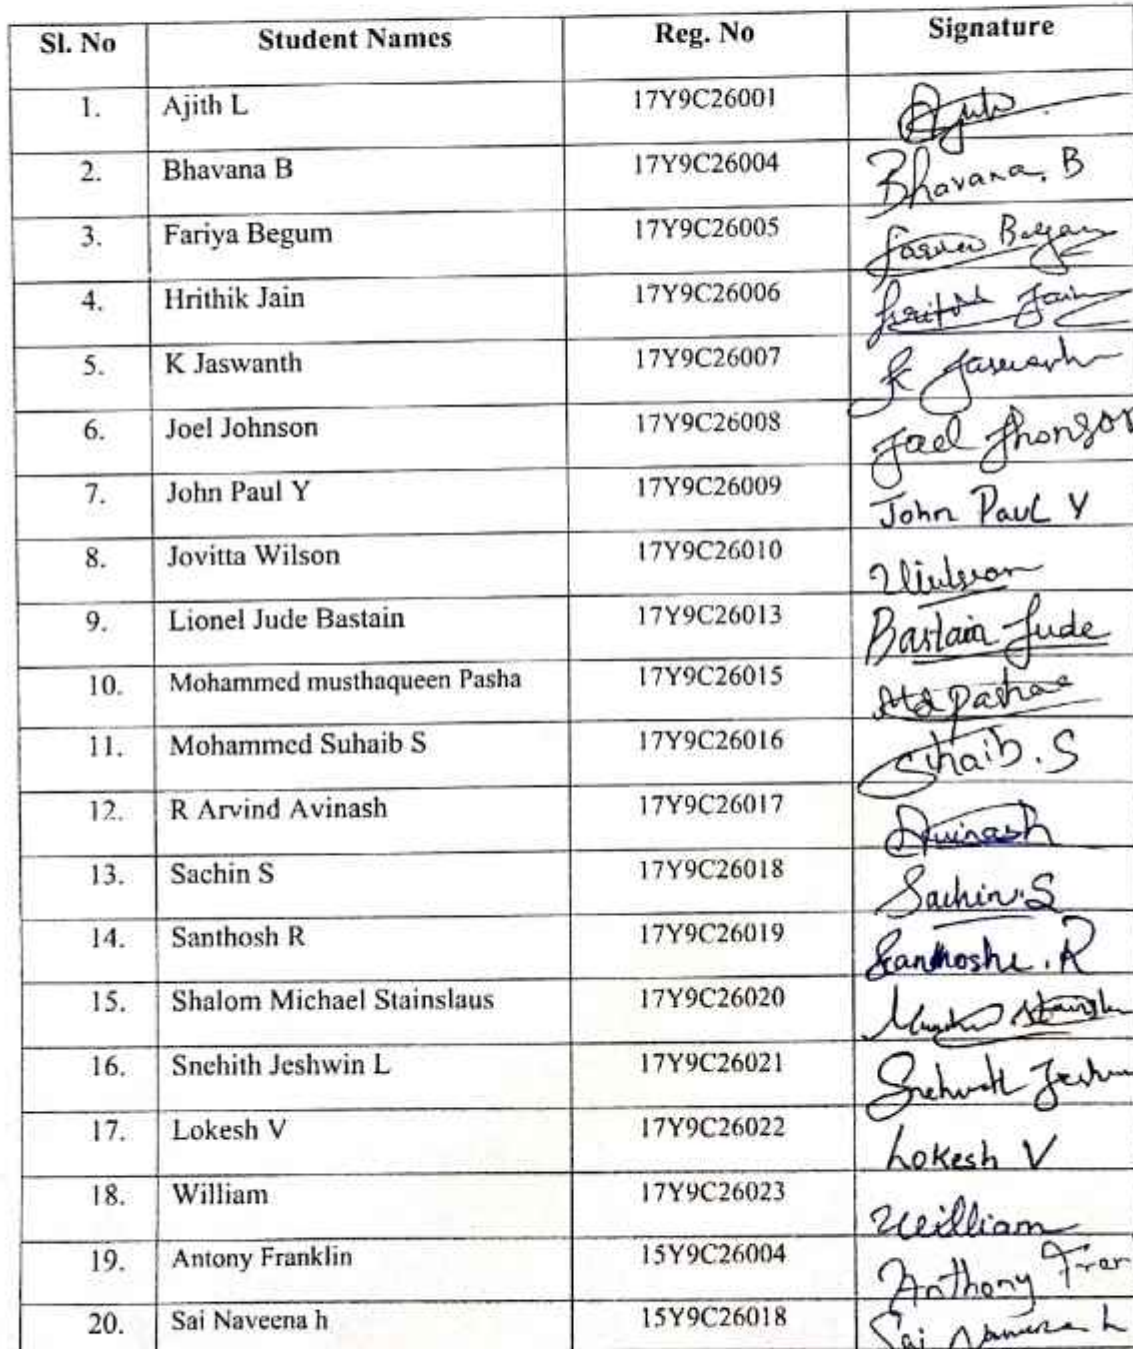 Sl. No Student Names Reg. No Signature
1. Ajith L 17Y9C26001 Ajith
2. Bhavana B 17Y9C26004 Bhavana. B
3. Fariya Begum 17Y9C26005
4. Hrithik Jain 17Y9C26006 Jain
5. K Jaswanth 17Y9C26007 K Jaswanth
6. Joel Johnson 17Y9C26008 Joel Jhonson
7. John Paul Y 17Y9C26009 John Paul Y
8. Jovitta Wilson 17Y9C26010
9. Lionel Jude Bastain 17Y9C26013 Bastain Jude
10. Mohammed musthaqueen Pasha 17Y9C26015 Md pasha
11. Mohammed Suhaib S 17Y9C26016 Suhaib. S
12. R Arvind Avinash 17Y9C26017 Avinash
13. Sachin S 17Y9C26018 Sachin. S
14. Santhosh R 17Y9C26019 R
15. Shalom Michael Stainslaus 17Y9C26020
16. Snehith Jeshwin L 17Y9C26021
17. Lokesh V 17Y9C26022 Lokesh V
18. William 17Y9C26023 William
19. Antony Franklin 15Y9C26004 Anthony Fran
20. Sai Naveena h 15Y9C26018 Sai